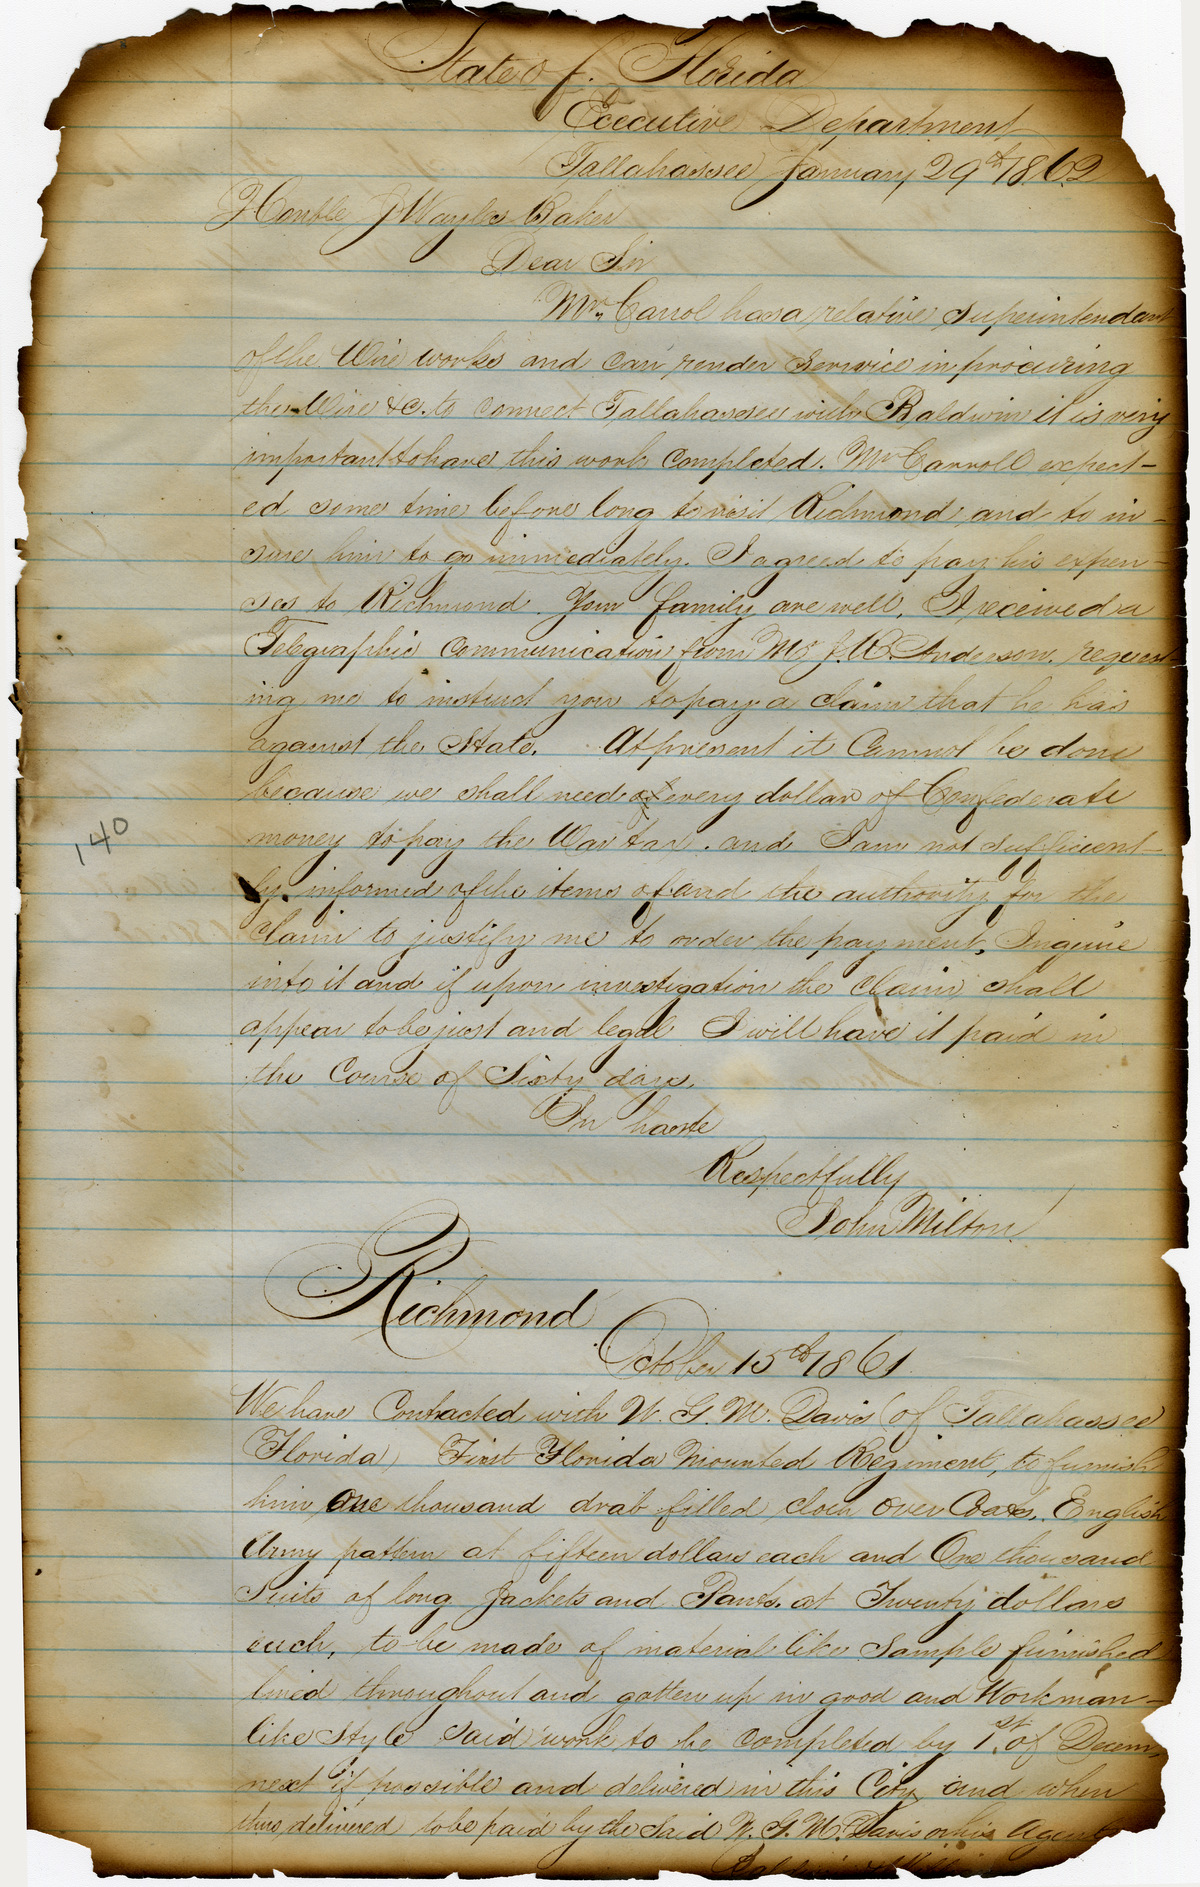 State of Florida
Executive Department
Tallahassee January 29th 1862
Honble J Wayles Baker
Dear Sir
Mr. Carrol has a relative Superintendant
of the Wire works and can render Service in procuring
the Wire &c. to connect Tallahassee with Baldwin it is very
important to have this work completed. Mr Carroll expect-
ed some time before long to visit Richmond and to in-
sure him to go immediately. I agreed to pay his expen-
ses to Richmond. Your family are well. I received a
Telegraphic Communication from Mr J. R. Anderson. request-
ing me to instruct you to pay a claim that he has
against the State. At present it Cannot be done
because we shall need every dollar of Confederate
money to pay the War tax. and I am not sufficient-
ly informed of the items of and the authority for the
Claim to justify me to order the payment, Inquire
into it and if upon investigation the Claim shall
appear to be just and legal I will have it paid in
the Course of Sixty days.
In haste
Respectfully
John Milton
140
Richmond
October 15th 1861
We have Contracted with W. G. M. Davis (of Tallahassee
Florida) First Florida Mounted Regiment, to furnish
him One thousand drab filled cloth over Coats, English
Army pattern at fifteen dollars each and One thousand
Suits of long Jackets and Pants. at Twenty dollars
each, to be made of material like Sample furnished
lined throughout and gotten up in good and Workman-
like Style Said work to be completed by 1st of Decem,
next if possible and delivered in this City and when
thus delivered to be paid by the Said W. G. M. Davis or his Agent